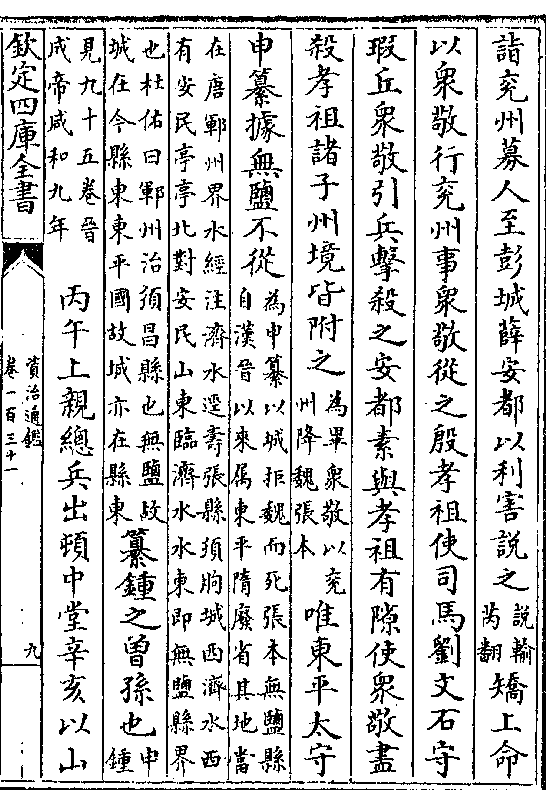 詣兖州募人至彭城薛安都以利害説之説輸芮翻矯上命
以衆敬行兖州事衆敬從之殷孝祖使司馬劉文石守
瑕丘衆敬引兵擊殺之安都素與孝祖有隙使衆敬盡
殺孝祖諸子州境皆附之為畢衆敬以兖州降魏張本唯東平太守
申纂據無鹽不從為申纂以城拒魏而死張本無鹽縣自漢晉以來屬東平隋廢省其地當
在唐鄆州界水經注濟水逕壽張縣須朐城西濟水西有安民亭亭北對安民山東臨濟水水東即無鹽縣界
也杜佑曰鄆州治須昌縣也無鹽故城在今縣東東平國故城亦在縣東纂鍾之曽孫也申鍾
見九十五卷晉成帝咸和九年丙午上親總兵出頓中堂辛亥以山
欽定四庫全書
資治通鑑
卷一百三十一
九